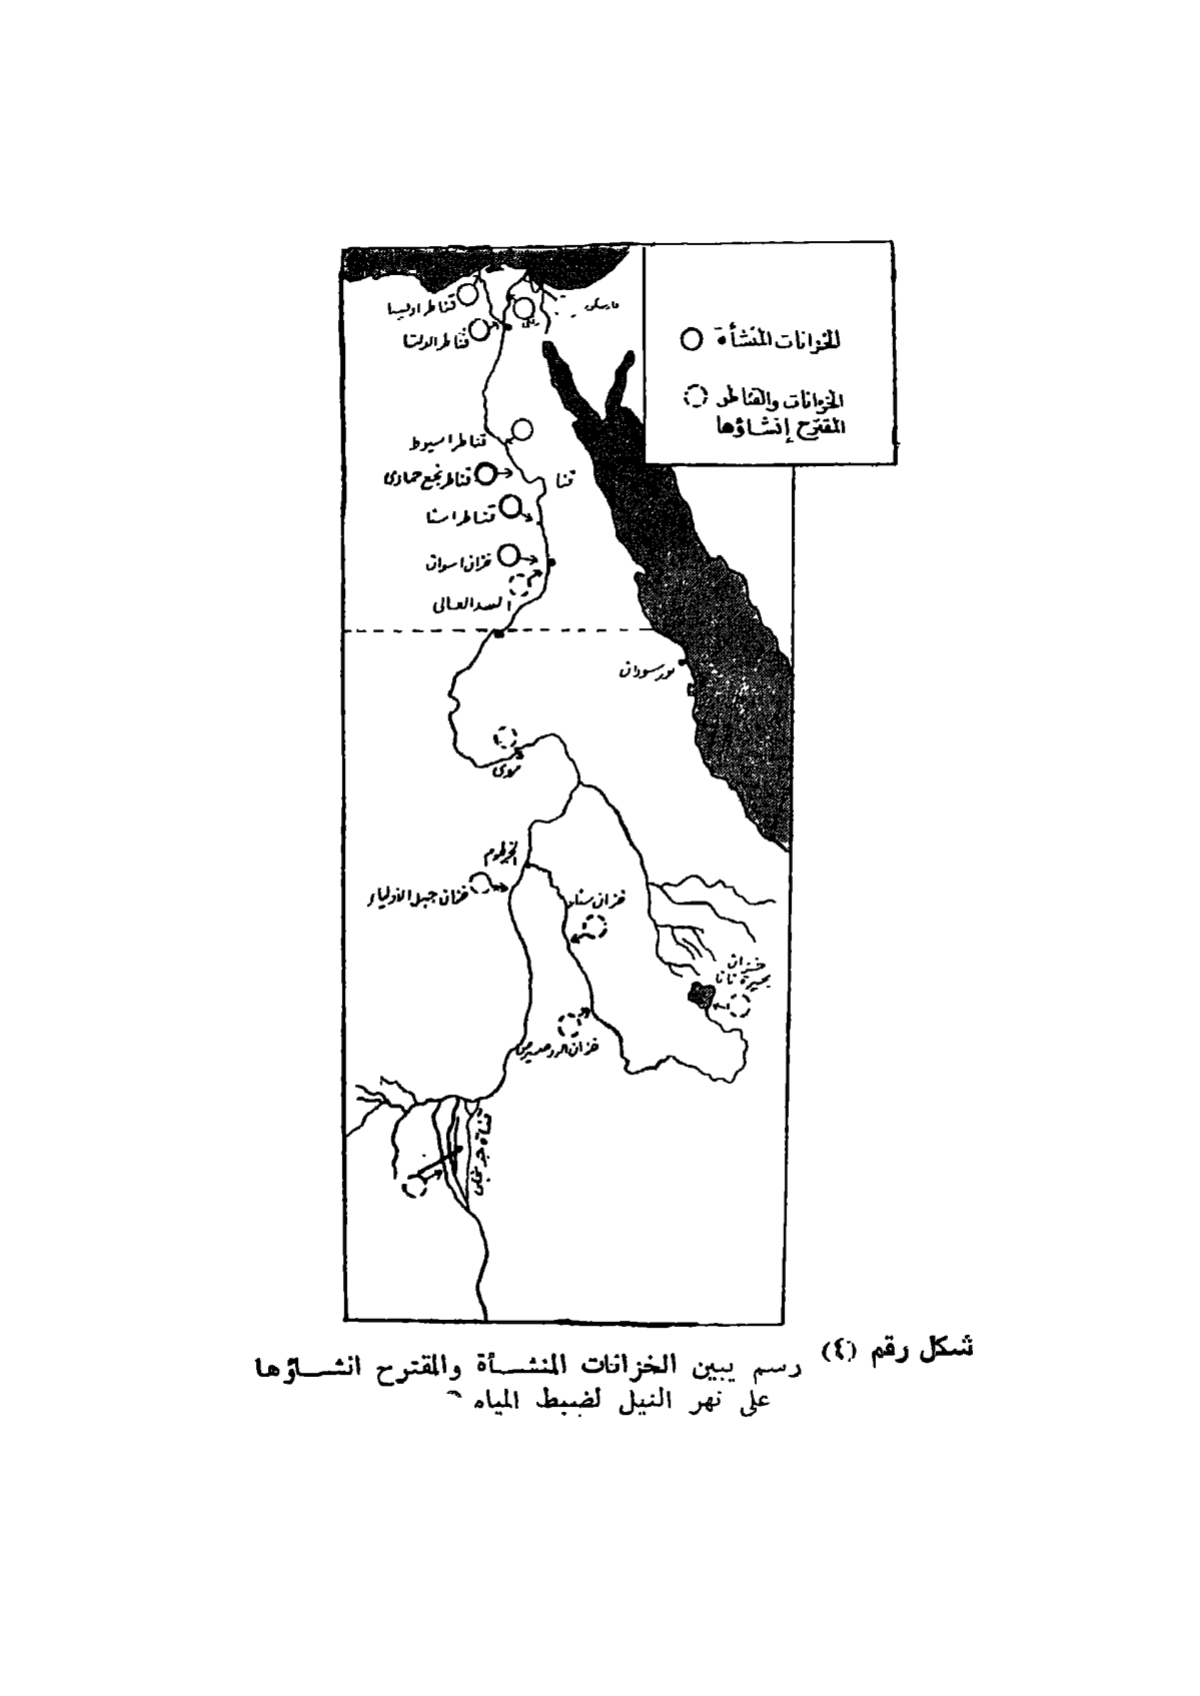 الخزانات المنشأة
الخزانات والقناطر
المقترح إنشاؤها
قناطر ادفينا
قناطر الدلتا
زفتى
فارسكور
قناطر اسيوط
قناطر نجع حمادى
قنا
قناطر اسنا
خزان اسوان
السد العالى
بور سودان
مروى
الخرطوم
خزان جبل الأولياء
خزان سنار
خزان
بحيرة تانا
خزان الروصيرص
قناة جونجلى
شكل رقم (٤)
رسم يبين الخزانات المنشأة والمقترح انشاؤها
على نهر النيل لضبط المياه